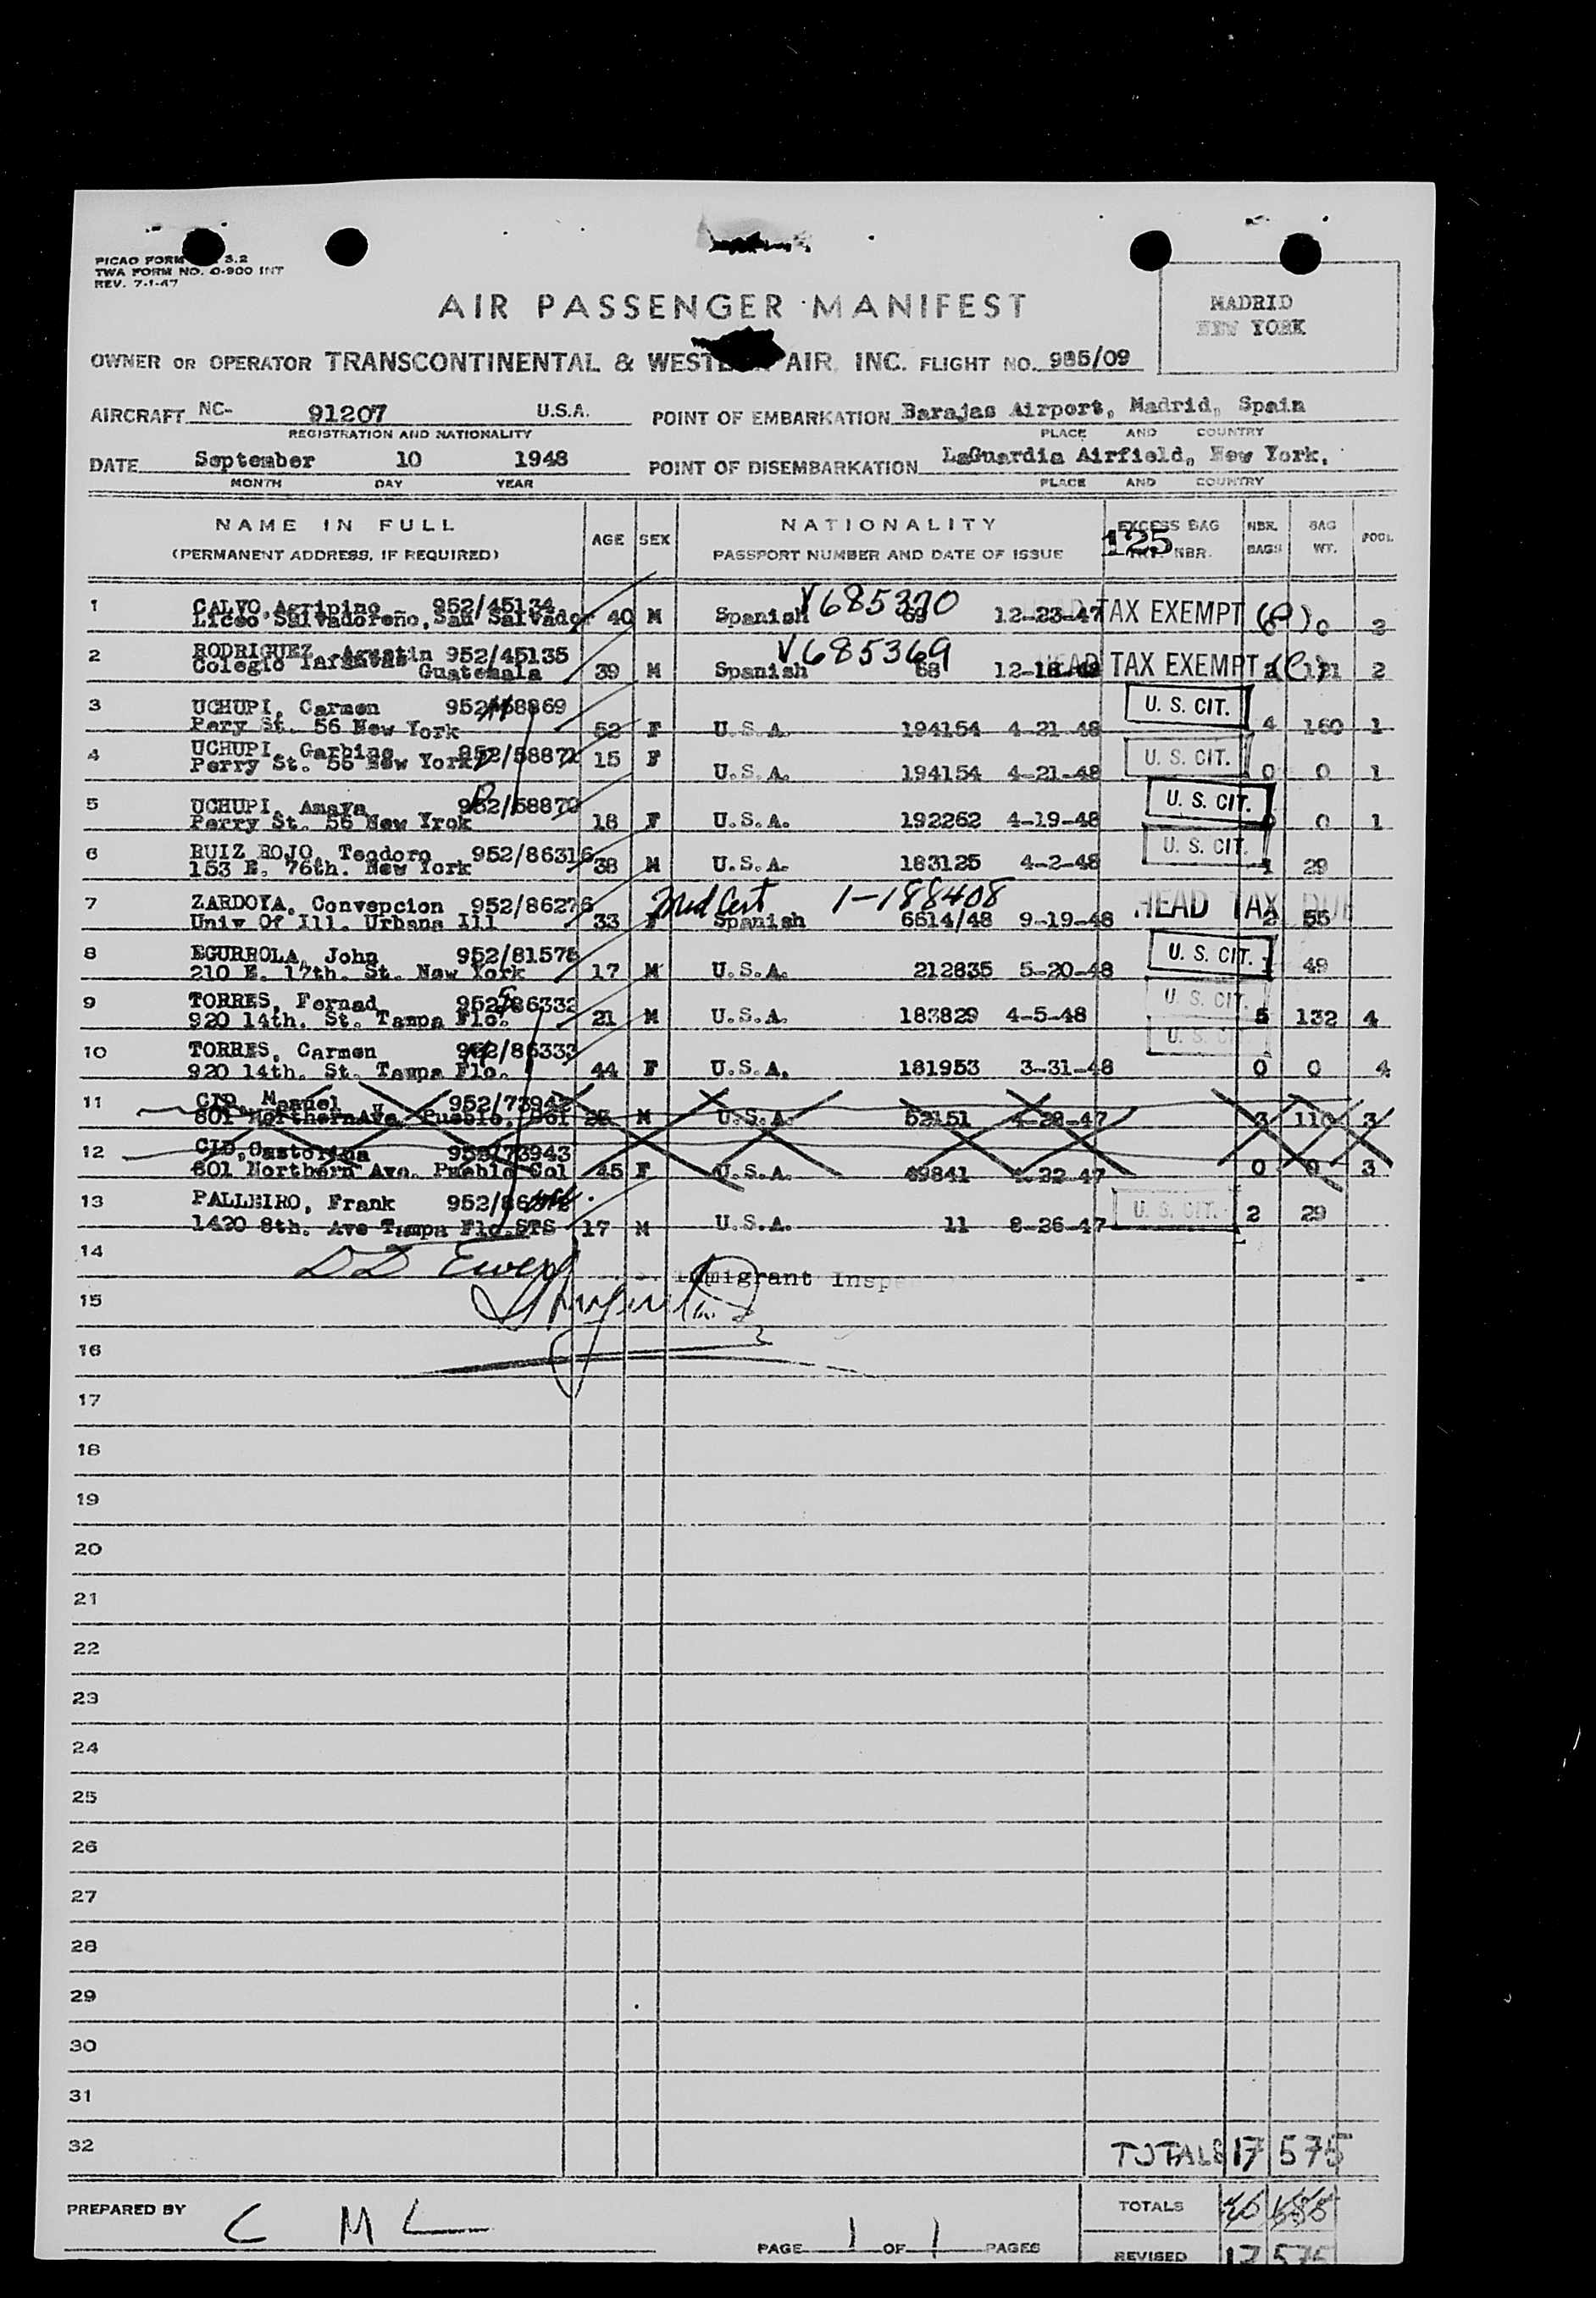 PICAO FORM 3.2
TWA FORM NO. O-900 INT
REV. 7-1-47
AIR PASSENGER MANIFEST
MADRID
NEW YORK
OWNER OR OPERATOR TRANSCONTINENTAL & WESTERN AIR, INC. FLIGHT NO. 985/09
AIRCRAFT NC- 91207 U.S.A. POINT OF EMBARKATION Barajas Airport, Madrid, Spain
REGISTRATION AND NATIONALITY PLACE AND COUNTRY
DATE September 10 1948 POINT OF DISEMBARKATION LaGuardia Airfield, New York,
MONTH DAY YEAR PLACE AND COUNTRY
NAME IN FULL AGE SEX NATIONALITY EXCESS BAG NBR. BAG POOL
(PERMANENT ADDRESS, IF REQUIRED) PASSPORT NUMBER AND DATE OF ISSUE 125 NBR. BAGS WT.
1 CALVO, Agripino 952/45134 V685370 HEAD TAX EXEMPT
Liceo Salvadoreño, San Salvador 40 M Spanish 69 12-23-47 0 2
2 RODRIGUEZ, Agustin 952/45135 V685369 HEAD TAX EXEMPT
Colegio Infantes Guatemala 39 M Spanish 68 121 2
3 UCHUPI, Carmen 952/58869 U. S. CIT.
Pery St. 56 New York 52 F U.S.A. 194154 4-21-48 4 160 1
4 UCHUPI, Garbine 952/58871 15 F U. S. CIT.
Perry St. 56 New York U.S.A. 194154 4-21-48 0 0 1
5 UCHUPI, Amaya 952/58870 U. S. CIT.
Perry St. 56 New Yrok 18 F U.S.A. 192262 4-19-48 0 1
6 RUIZ ROJO, Teodoro 952/86316 U. S. CIT.
153 E. 76th. New York 38 M U.S.A. 183125 4-2-48 1 29
7 ZARDOYA, Convepcion 952/86276 Med Cert 1-188408 HEAD TAX DUE
Univ Of Ill. Urbana Ill 33 F Spanish 6614/48 9-19-48 2 55
8 EGURROLA, John 952/81575 U. S. CIT.
210 E. 17th. St. New York 17 M U.S.A. 212835 5-20-48 49
9 TORRES, Fernad 952/86332 U. S. CIT.
920 14th. St. Tampa Flo. 21 M U.S.A. 183829 4-5-48 5 132 4
10 TORRES, Carmen 952/86333 U. S. CIT.
920 14th. St. Tampa Flo. 44 F U.S.A. 181953 3-31-48 0 0 4
11 CID, Manuel 952/73942
801 NorthernAve. Pueblo, Col M U.S.A. 52151 4-28-47 3 110 3
12 CID, Castorina 952/73943
801 Northern Ave. Pueblo Col 45 F U.S.A. 69841 4-22-47 0 0 3
13 PALLEIRO, Frank U. S. CIT.
1420 8th. Ave Tampa Flo.STS 17 M U.S.A. 11 8-26-47 2 29
14 DD Ewen Immigrant Inspe
15
16
17
18
19
20
21
22
23
24
25
26
27
28
29
30
31
32 TOTALS 17 575
PREPARED BY C M L TOTALS
PAGE 1 OF 1 PAGES REVISED 17 575